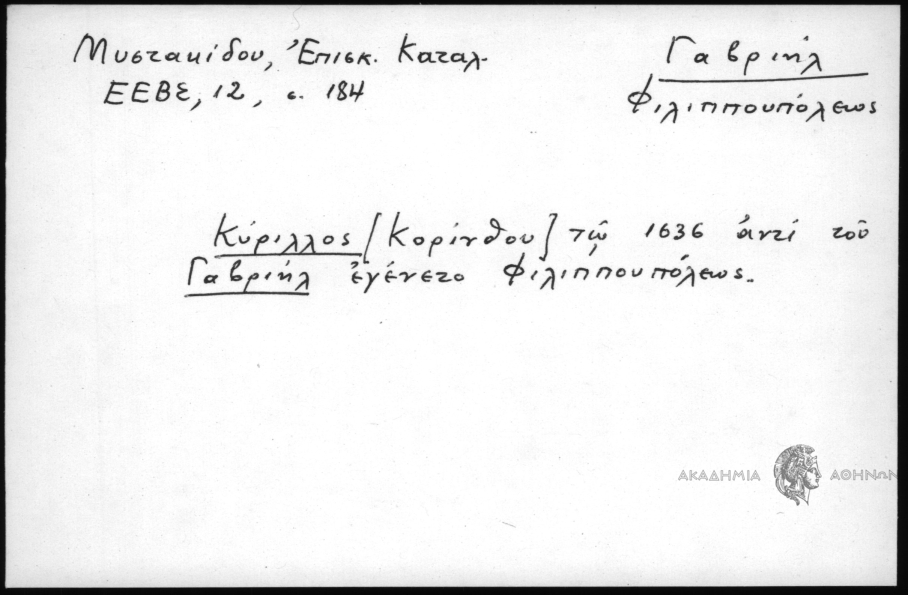 Μυστακίδου, Ἐπισκ. Καταλ.
ΕΕΒΣ, 12, σ. 184
Γαβριήλ
Φιλιππουπόλεως
Κύριλλος [Κορίνθου] τῷ 1636 ἀντί τοῦ
Γαβριήλ ἐγένετο Φιλιππουπόλεως.
ΑΚΑΔΗΜΙΑ ΑΘΗΝΩΝ